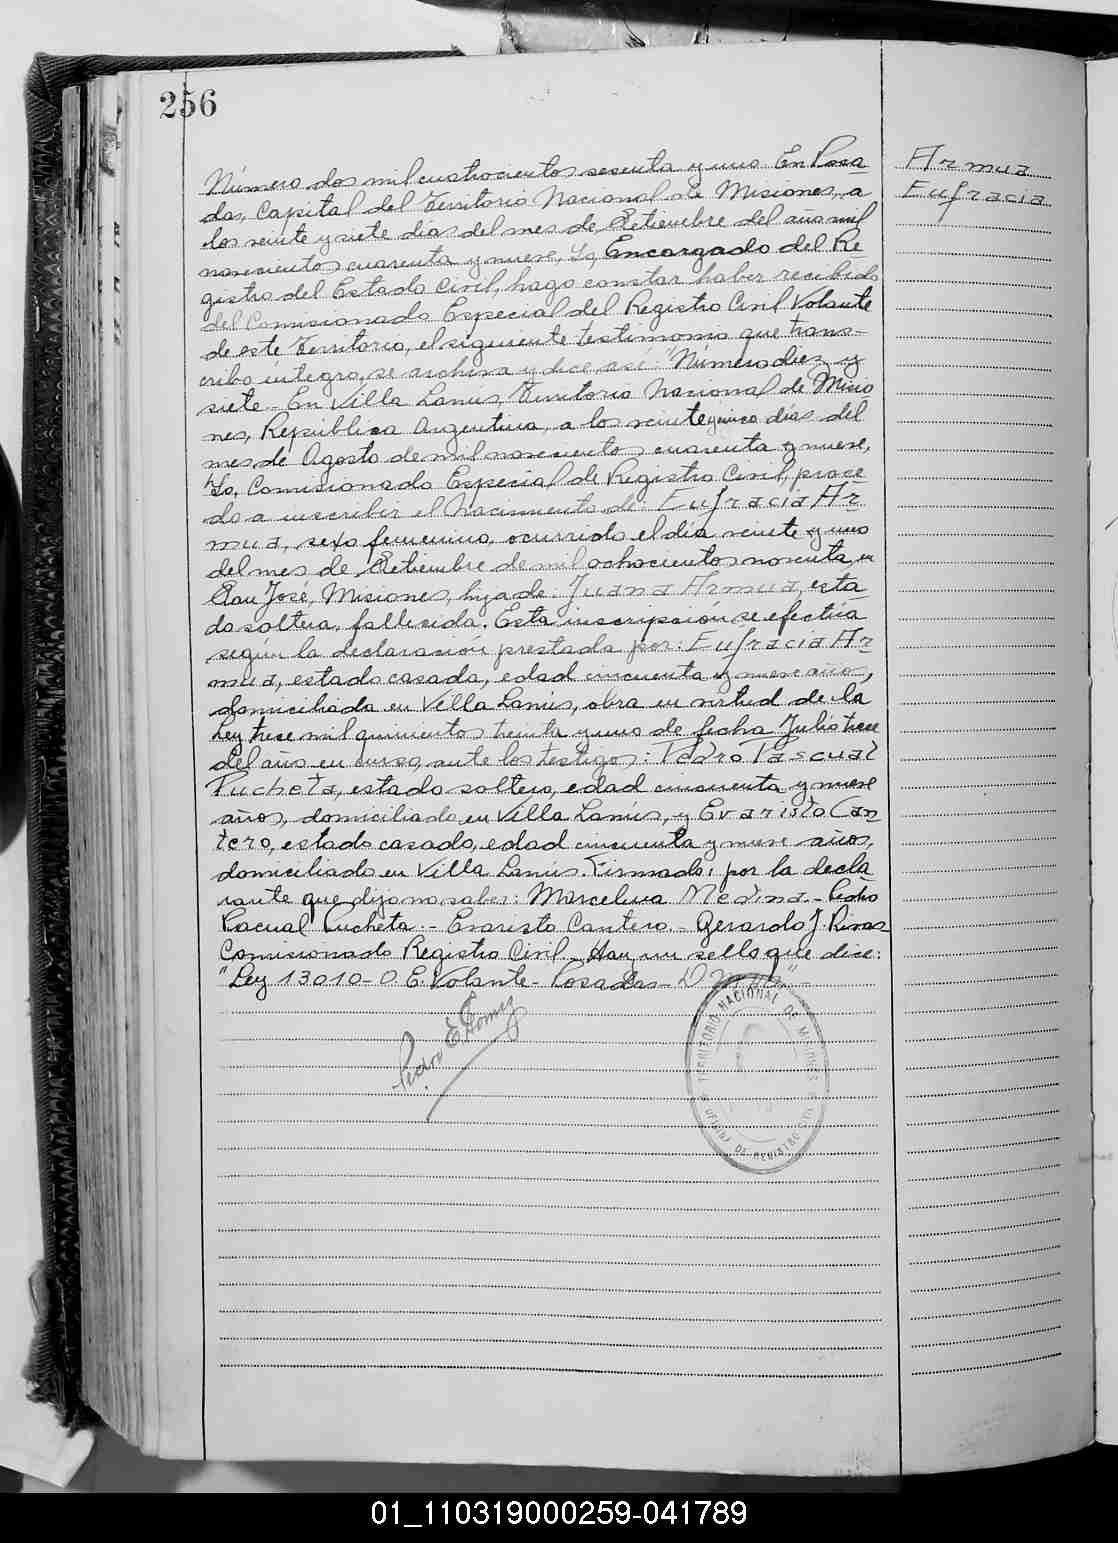 256
Armua
Eufracia
Número dos mil cuatrocientos sesenta y uno. En Posa
das, Capital del Territorio Nacional de Misiones, a
los veinte y siete dias del mes de Setiembre del año mil
novecientos cuarenta y nueve, Yo, Encargado del Re
gistro del Estado Civil, hago constar haber recibido
del Comisionado Especial del Registro Civil Volante
de este Territorio, el siguiente testimonio que trans-
cribo integro, se archiva y dice asi: "Número diez y
siete.- En Villa Lanus, Territorio Nacional de Misio
nes, República Argentina, a los veinte y cinco dias del
mes de Agosto de mil novecientos cuarenta y nueve,
Yo, Comisionado Especial de Registro Civil, proce
do a inscribir el Nacimiento de: Eufracia Ar
mua, sexo femenino, ocurrido el día veinte y uno
del mes de Setiembre de mil ochocientos noventa, en
San José, Misiones, hija de: Juana Armua, esta
do soltera, fallecida. Esta inscripción se efectúa
según la declaración prestada por: Eufracia Ar
mua, estado casada, edad cincuenta y nueve años,
domiciliada en Villa Lanús, obra en virtud de la
Ley trece mil quinientos treinta y uno de fecha Julio trece
del año en curso, ante los testigos: Pedro Pascual
Pucheta, estado soltero, edad cincuenta y nueve
años, domiciliado en Villa Lanús, y Evaristo Can
tero, estado casado, edad cincuenta y nueve años,
domiciliado en Villa Lanús. Firmado: por la decla
rante que dijo no saber: Marcelina Medina.- Pedro
Pacual Pucheta.- Evaristo Cantero.- Gerardo J. Rivas
Comisionado Registro Civil.- Hay un sello que dice:
"Ley 13010-O.E. Volante- Posadas-
Pedro E. Gomez
TERRITORIO NACIONAL DE MISIONES
OFICINA DE REGISTRO CIVIL
01_110319000259-041789